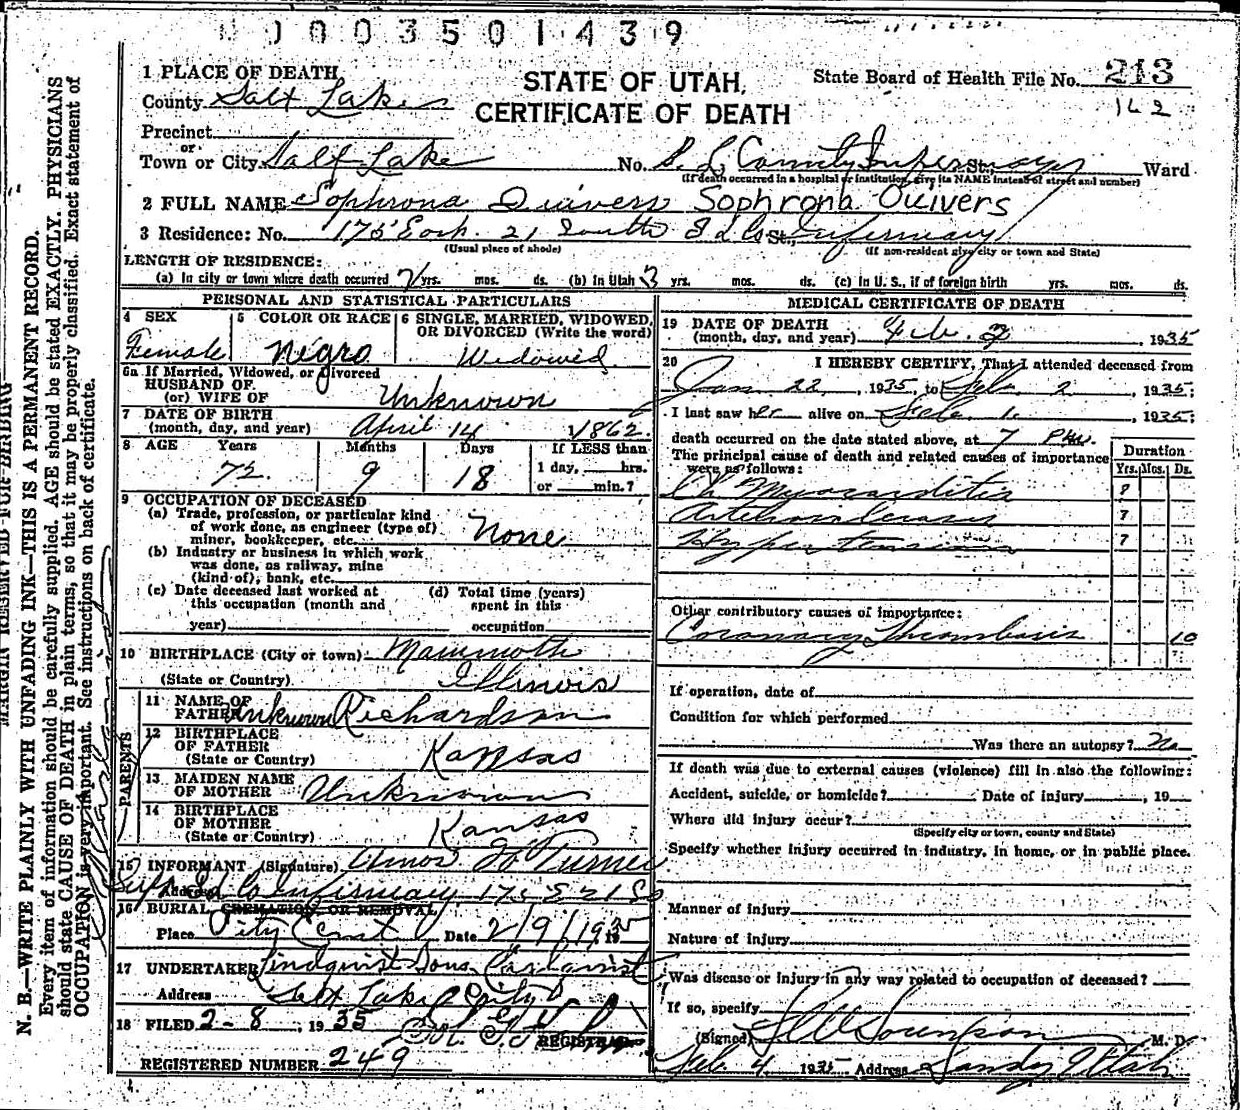 0003501439
1 PLACE OF DEATH
STATE OF UTAH
CERTIFICATE OF DEATH
State Board of Health File No. 213
162
County Salt Lake
Precinct
or
Town or City Salt Lake No. S. L. County Infirmary St., Ward
(If death occurred in a hospital or institution, give its NAME instead of street and number)
2 FULL NAME Sophrona Quivers Sophrona Quivers
3 Residence: No. 175 East 21 South S L Co St., Infirmary
(Usual place of abode) (If non-resident give city or town and State)
LENGTH OF RESIDENCE:
(a) In city or town where death occurred yrs. mos. ds. (b) In Utah 3 yrs. mos. ds. (c) In U. S., if of foreign birth yrs. mos. ds.
PERSONAL AND STATISTICAL PARTICULARS
4 SEX
Female
5 COLOR OR RACE
Negro
6 SINGLE, MARRIED, WIDOWED, OR DIVORCED (Write the word)
Widowed
6a If Married, Widowed, or Divorced
HUSBAND OF
(or) WIFE OF Unknown
7 DATE OF BIRTH
(month, day, and year) April 14 1862
8 AGE Years Months Days If LESS than
72 9 18 1 day, hrs.
or min.?
9 OCCUPATION OF DECEASED
(a) Trade, profession, or particular kind
of work done, as engineer (type of)
miner, bookkeeper, etc. None
(b) Industry or business in which work
was done, as railway, mine
(kind of), bank, etc.
(c) Date deceased last worked at
this occupation (month and
year)
(d) Total time (years)
spent in this
occupation
10 BIRTHPLACE (City or town) Mammoth
(State or Country) Illinois
PARENTS
11 NAME OF
FATHER Unknown Richardson
12 BIRTHPLACE
OF FATHER
(State or Country) Kansas
13 MAIDEN NAME
OF MOTHER Unknown
14 BIRTHPLACE
OF MOTHER
(State or Country) Kansas
15 INFORMANT (Signature) Amos Turner
Address Co Infirmary 175 E 21 So
16 BURIAL CREMATION, OR REMOVAL
Place City Cem Date 2/9/1935
17 UNDERTAKER Lindquist Sons
Address Salt Lake City
18 FILED 2-8, 1935
REGISTRAR
REGISTERED NUMBER 249
MEDICAL CERTIFICATE OF DEATH
19 DATE OF DEATH
(month, day, and year) Feb. 2, 1935
20 I HEREBY CERTIFY, That I attended deceased from
Jan 22, 1935, to Feb. 2, 1935;
I last saw her alive on Feb. 1, 1935;
death occurred on the date stated above, at 7 PM.
The principal cause of death and related causes of importance
were as follows:
Duration
Yrs. Mos. Ds.
Ch Myocarditis ?
Arteriosclerosis ?
Hypertension ?
Other contributory causes of importance:
Coronary Thrombosis 10
If operation, date of
Condition for which performed
Was there an autopsy? No
If death was due to external causes (violence) fill in also the following:
Accident, suicide, or homicide? Date of injury, 19
Where did injury occur?
(Specify city or town, county and State)
Specify whether injury occurred in industry, in home, or in public place.
Manner of injury
Nature of injury
Was disease or injury in any way related to occupation of deceased?
If so, specify
(Signed) M. D.
Feb. 4 1935 Address Sandy Utah
MARGIN RESERVED FOR BINDING
N. B.—WRITE PLAINLY WITH UNFADING INK—THIS IS A PERMANENT RECORD.
Every item of information should be carefully supplied. AGE should be stated EXACTLY. PHYSICIANS
should state CAUSE OF DEATH in plain terms, so that it may be properly classified. Exact statement of
OCCUPATION is very important. See instructions on back of certificate.